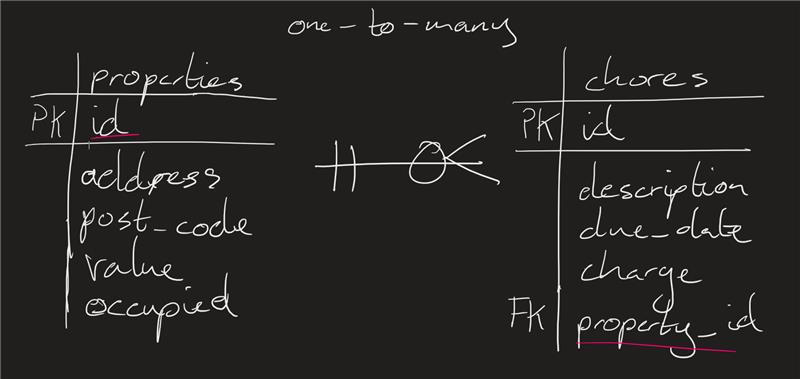 one-to-many
properties
PK id
address
post_code
value
occupied
chores
PK id
description
due_date
charge
FK property_id